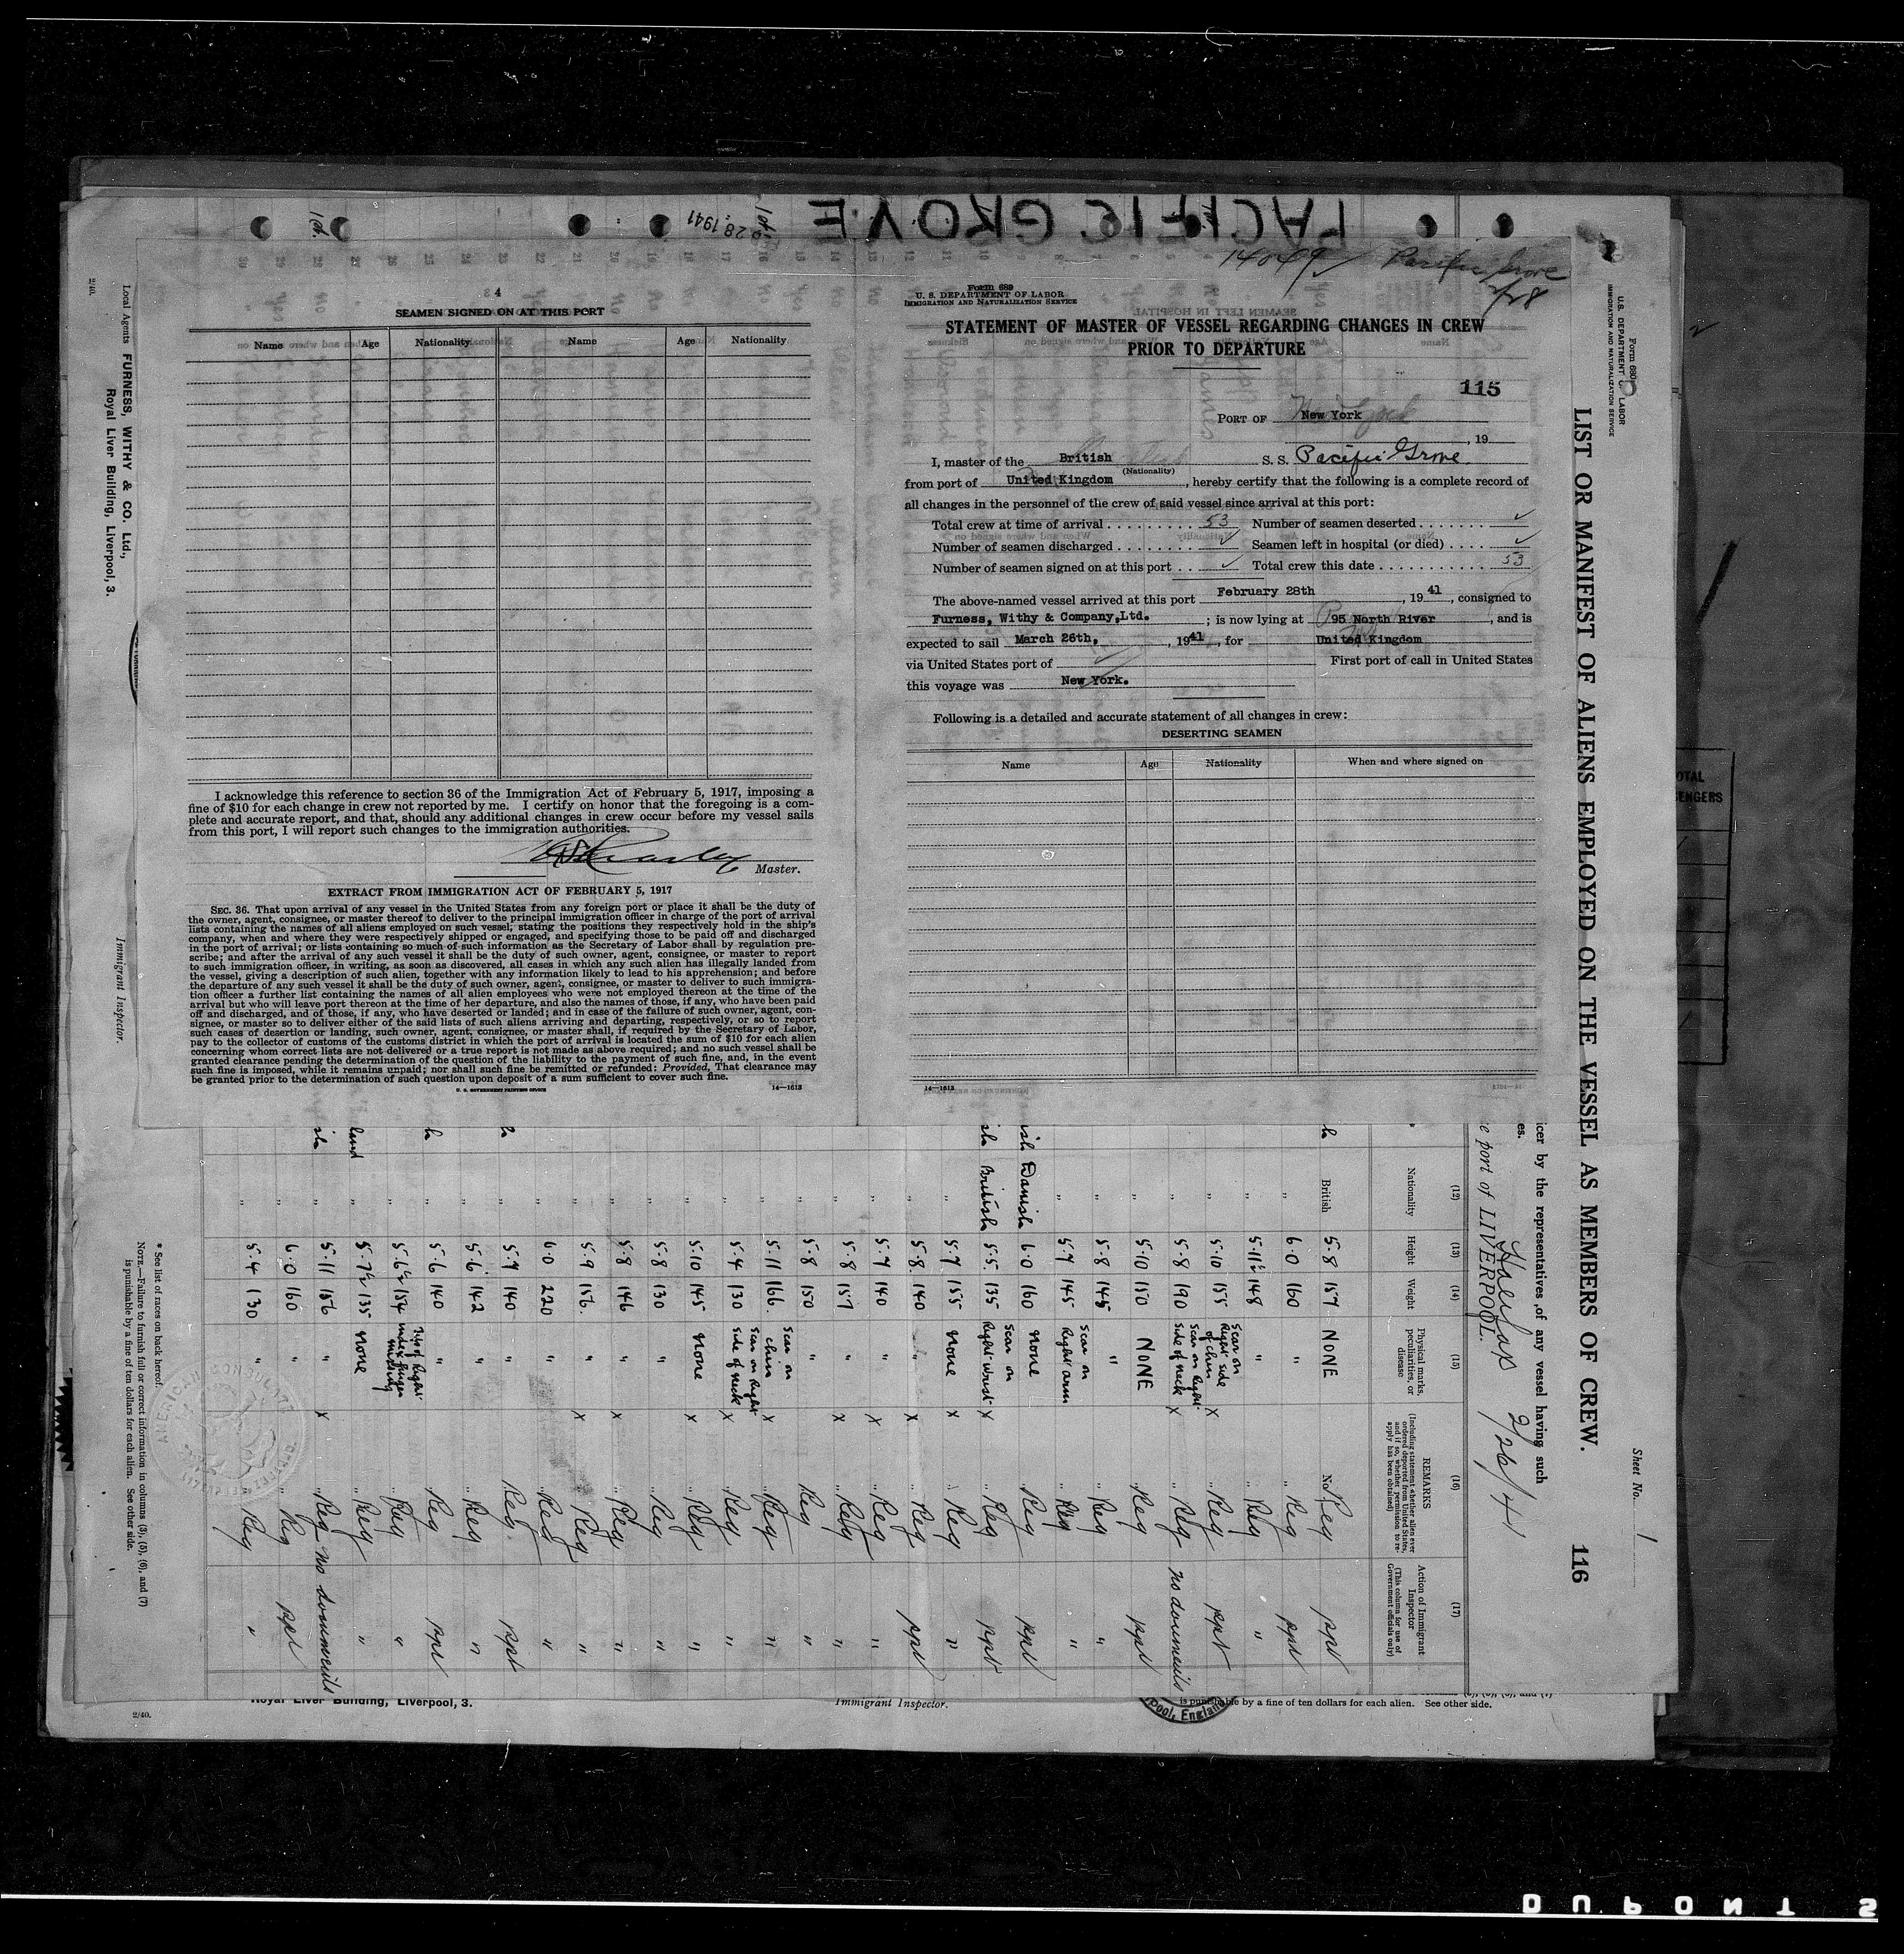 PACIFIC GROVE
28 1941
14049 Pacific Grove
2/28
4
SEAMEN SIGNED ON AT THIS PORT
Name Age Nationality Name Age Nationality
I acknowledge this reference to section 36 of the Immigration Act of February 5, 1917, imposing a
fine of $10 for each change in crew not reported by me. I certify on honor that the foregoing is a com-
plete and accurate report, and that, should any additional changes in crew occur before my vessel sails
from this port, I will report such changes to the immigration authorities.
Master.
EXTRACT FROM IMMIGRATION ACT OF FEBRUARY 5, 1917
SEC. 36. That upon arrival of any vessel in the United States from any foreign port or place it shall be the duty of
the owner, agent, consignee, or master thereof to deliver to the principal immigration officer in charge of the port of arrival
lists containing the names of all aliens employed on such vessel, stating the positions they respectively hold in the ship's
company, when and where they were respectively shipped or engaged, and specifying those to be paid off and discharged
in the port of arrival; or lists containing so much of such information as the Secretary of Labor shall by regulation pre-
scribe; and after the arrival of any such vessel it shall be the duty of such owner, agent, consignee, or master to report
to such immigration officer, in writing, as soon as discovered, all cases in which any such alien has illegally landed from
the vessel, giving a description of such alien, together with any information likely to lead to his apprehension; and before
the departure of any such vessel it shall be the duty of such owner, agent, consignee, or master to deliver to such immigra-
tion officer a further list containing the names of all alien employees who were not employed thereon at the time of the
arrival but who will leave port thereon at the time of her departure, and also the names of those, if any, who have been paid
off and discharged, and of those, if any, who have deserted or landed; and in case of the failure of such owner, agent, con-
signee, or master so to deliver either of the said lists of such aliens arriving and departing, respectively, or so to report
such cases of desertion or landing, such owner, agent, consignee, or master shall, if required by the Secretary of Labor,
pay to the collector of customs of the customs district in which the port of arrival is located the sum of $10 for each alien
concerning whom correct lists are not delivered or a true report is not made as above required; and no such vessel shall be
granted clearance pending the determination of the question of the liability to the payment of such fine, and, in the event
such fine is imposed, while it remains unpaid; nor shall such fine be remitted or refunded: Provided, That clearance may
be granted prior to the determination of such question upon deposit of a sum sufficient to cover such fine.
U. S. GOVERNMENT PRINTING OFFICE 14—1613
Form 689
U. S. DEPARTMENT OF LABOR
IMMIGRATION AND NATURALIZATION SERVICE
STATEMENT OF MASTER OF VESSEL REGARDING CHANGES IN CREW
PRIOR TO DEPARTURE
115
PORT OF New York
, 19
I, master of the British S. S. Pacific Grove
(Nationality)
from port of United Kingdom, hereby certify that the following is a complete record of
all changes in the personnel of the crew of said vessel since arrival at this port:
Total crew at time of arrival 53 Number of seamen deserted ✓
Number of seamen discharged ✓ Seamen left in hospital (or died) ✓
Number of seamen signed on at this port ✓ Total crew this date 53
The above-named vessel arrived at this port February 28th, 1941, consigned to
Furness, Withy & Company,Ltd. ; is now lying at P95 North River, and is
expected to sail March 26th, , 1941, for United Kingdom
via United States port of First port of call in United States
this voyage was New York.
Following is a detailed and accurate statement of all changes in crew:
DESERTING SEAMEN
Name Age Nationality When and where signed on
14—1613
Form 680
U. S. DEPARTMENT OF LABOR
IMMIGRATION AND NATURALIZATION SERVICE
LIST OR MANIFEST OF ALIENS EMPLOYED ON THE VESSEL AS MEMBERS OF CREW.
Sheet No. 1
116
icer by the representatives of any vessel having such
es.
e port of LIVERPOOL.
Halifax 2/26/41
(12) (13) (14) (15) (16) (17)
Nationality
Height
Weight
Physical marks, peculiarities, or disease
REMARKS
(Including statement whether alien ever ordered deported from United States, and if so, whether permission to re-apply has been obtained)
Action of Immigrant Inspector
(This column for use of Government officials only)
British 5·8 157 NONE No Reg ppt
" 6·0 160 " " Reg ppt
" 5·11½ 148 " " Reg "
" 5·10 155 Scar on Right side of chin X " Reg ppt
" 5·8 190 Scar on Right side of neck X " Reg no documents
" 5·10 150 NONE " Reg ppt
" 5·8 145 " " Reg "
" 5·7 145 Scar on Right arm " Reg "
Danish 6·0 160 none " Reg ppt
British 5·5 135 Scar on Right wrist X " Reg ppt
" 5·7 155 none X " Reg "
" 5·8 140 " X " Reg ppt
" 5·7 140 " X " Reg "
" 5·8 157 " X " Reg "
" 5·8 150 " Reg "
" 5·11 166 Scar on chin X " Reg "
" 5·4 130 Scar on Right side of neck X " Reg "
" 5·10 145 none X " Reg "
" 5·8 130 " " Reg "
" 5·8 146 " X " Reg "
" 5·9 156 " X " Reg "
" 6·0 220 " " Reg "
" 5·7 140 " Reg ppt
" 5·6 142 " " Reg "
" 5·6 140 " Reg ppt
" 5·6½ 154 Tip of Right index finger missing " Reg "
" 5·7½ 135 none " Reg "
" 5·11 156 " X " Reg no documents
" 6·0 160 " " Reg ppt
" 5·4 130 " " Reg "
* See list of races on back hereof.
NOTE.—Failure to furnish full or correct information in columns (3), (5), (6), and (7)
is punishable by a fine of ten dollars for each alien. See other side.
AMERICAN CONSULATE
Local Agents FURNESS, WITHY & CO. Ltd.,
Royal Liver Building, Liverpool, 3.
Immigrant Inspector.
2/40.
Royal Liver Building, Liverpool, 3.
Immigrant Inspector.
is punishable by a fine of ten dollars for each alien. See other side.
pool, England
2/40.
OTAL
ENGERS
DUPONT S